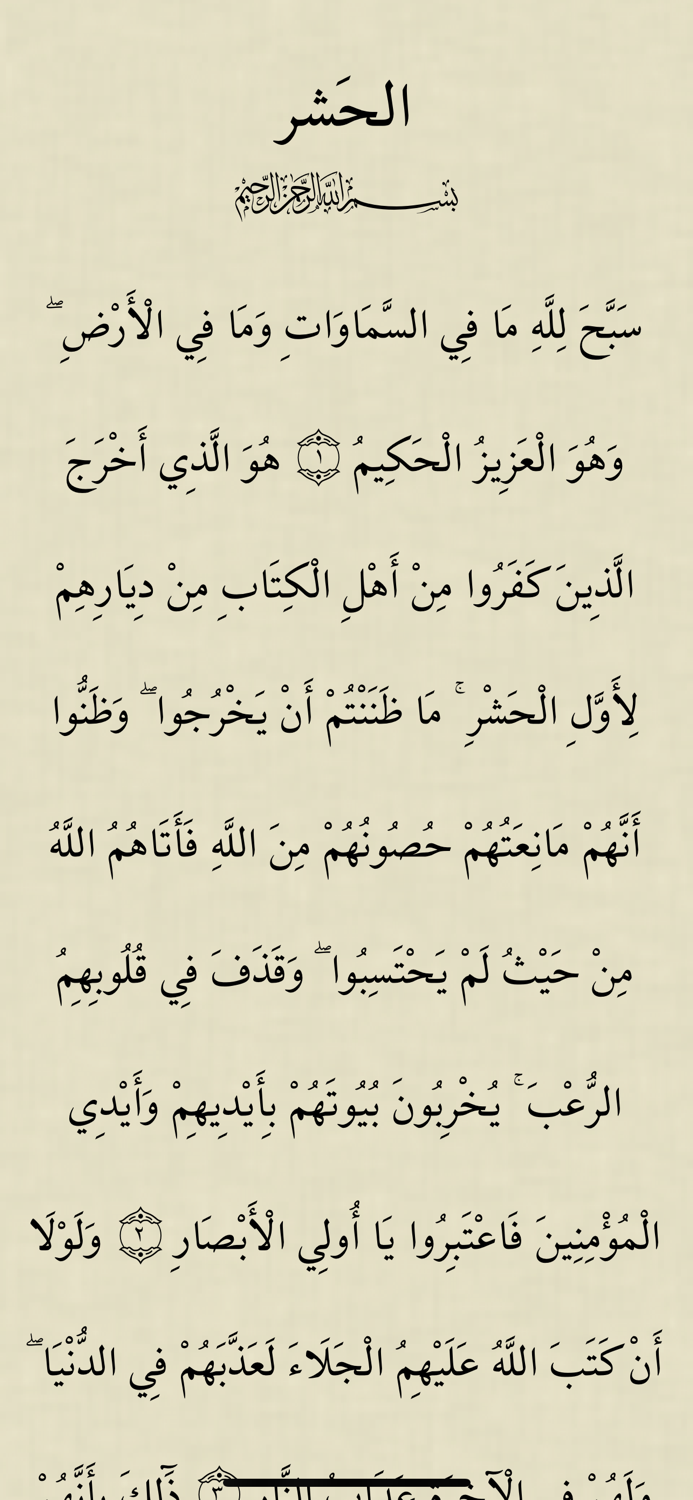 الحَشر
بسم الله الرحمن الرحيم
سَبَّحَ لِلَّهِ مَا فِي السَّمَاوَاتِ وَمَا فِي الْأَرْضِ ۖ
وَهُوَ الْعَزِيزُ الْحَكِيمُ ١ هُوَ الَّذِي أَخْرَجَ
الَّذِينَ كَفَرُوا مِنْ أَهْلِ الْكِتَابِ مِنْ دِيَارِهِمْ
لِأَوَّلِ الْحَشْرِ ۚ مَا ظَنَنْتُمْ أَنْ يَخْرُجُوا ۖ وَظَنُّوا
أَنَّهُمْ مَانِعَتُهُمْ حُصُونُهُمْ مِنَ اللَّهِ فَأَتَاهُمُ اللَّهُ
مِنْ حَيْثُ لَمْ يَحْتَسِبُوا ۖ وَقَذَفَ فِي قُلُوبِهِمُ
الرُّعْبَ ۚ يُخْرِبُونَ بُيُوتَهُمْ بِأَيْدِيهِمْ وَأَيْدِي
الْمُؤْمِنِينَ فَاعْتَبِرُوا يَا أُولِي الْأَبْصَارِ ٢ وَلَوْلَا
أَنْ كَتَبَ اللَّهُ عَلَيْهِمُ الْجَلَاءَ لَعَذَّبَهُمْ فِي الدُّنْيَا ۖ
وَلَهُمْ فِي الْآخِرَةِ عَذَابُ النَّارِ ٣ ذَٰلِكَ بِأَنَّهُمْ